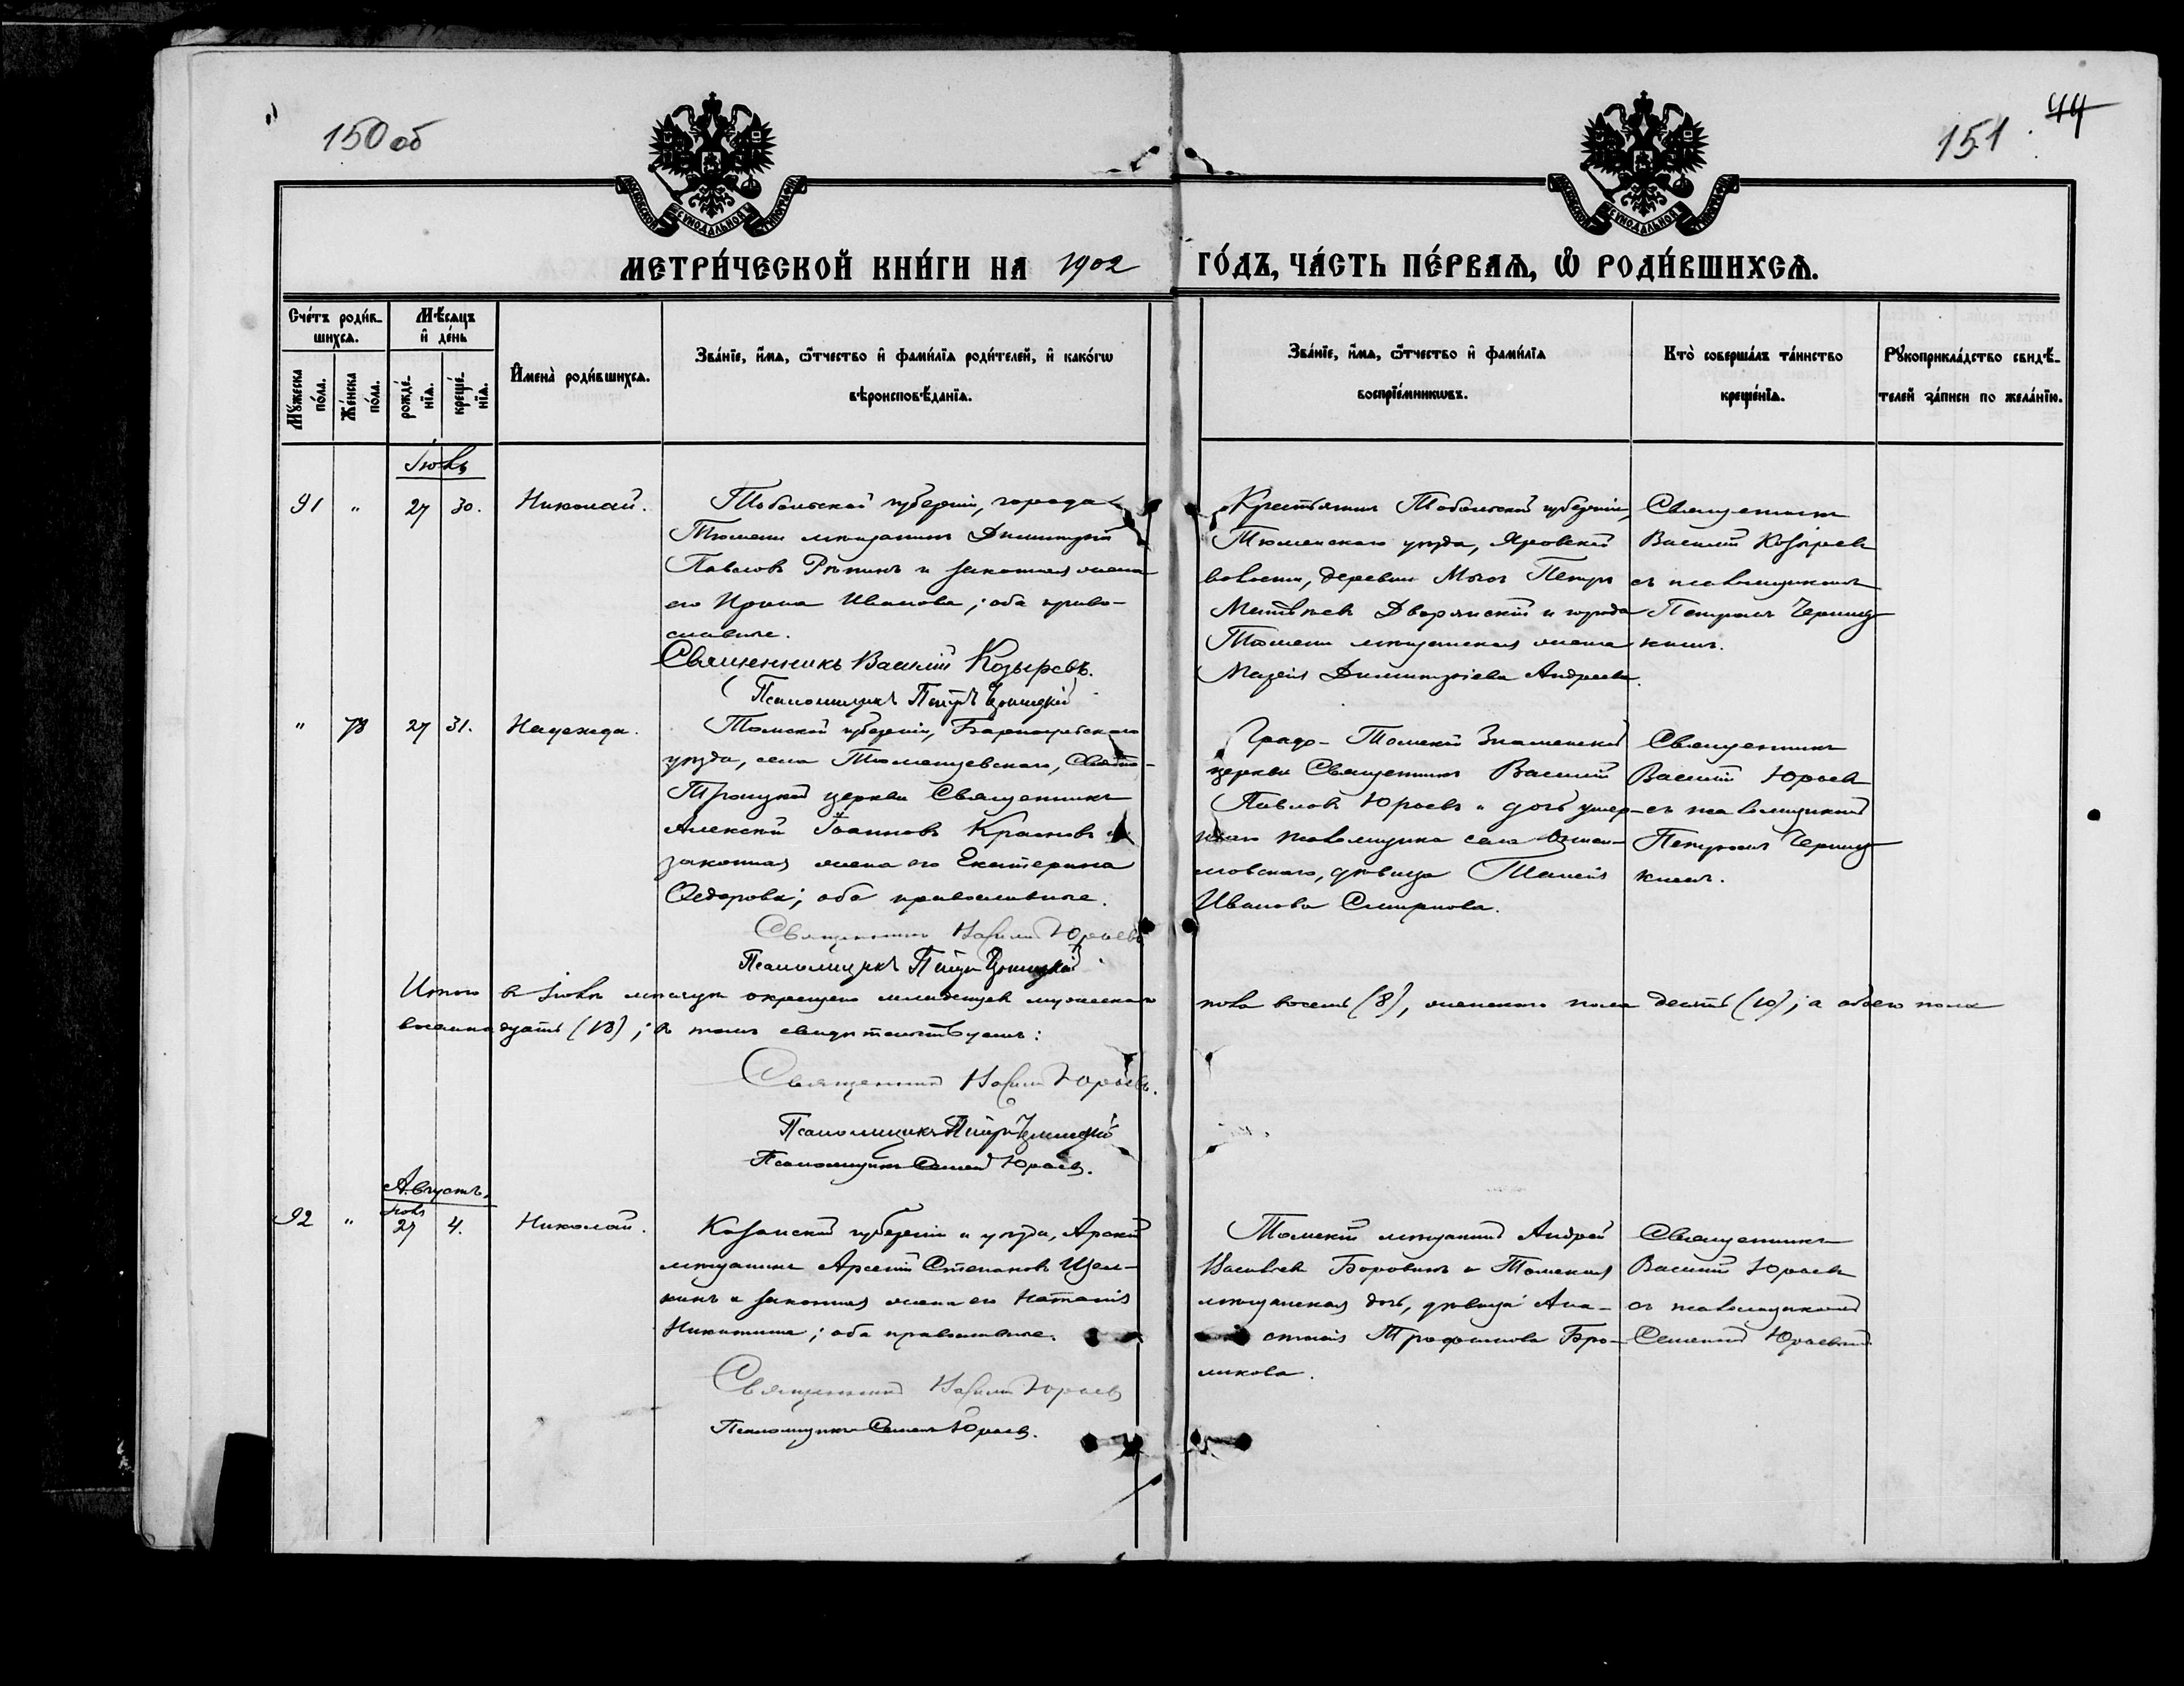 150 об
151.
44
МОСКОВСКОЙ СѴНОДАЛЬНОЙ ТИПОГРАФІИ
МОСКОВСКОЙ СѴНОДАЛЬНОЙ ТИПОГРАФІИ
МЕТРИ́ЧЕСКОЙ КНИ́ГИ НА 1902 ГО́ДЪ, ЧА́СТЬ ПЕ́РВАѦ, Ѡ҆ РОДИ́ВШИХСѦ.
Сче́тъ роди́в-
шихсѧ.
Мꙋ́жеска по́ла.
Же́нска по́ла.
Мѣ́сѧцъ
и҆ де́нь
рожде́-
нїѧ.
креще́-
нїѧ.
И҆мена̀ роди́вшихсѧ.
Зва́нїе, и҆́мѧ, ѻ҆́тчество и҆ фами́лїѧ роди́телей, и҆ како́гѡ
вѣроисповѣ́данїѧ.
Зва́нїе, и҆́мѧ, ѻ҆́тчество и҆ фами́лїѧ
воспрїе́мникѡвъ.
Кто̀ соверша́лъ та́инство
креще́нїѧ.
Рꙋкоприкла́дство свидѣ́-
телей за́писи по жела́нїю.
Іюль
91 " 27 30. Николай.
Тобольской губерніи, города
Тюмени мѣщанинъ Димитрій
Павловъ Рѣпинъ и законная жена
его Ирина Иванова; оба право-
славные.
Священникъ Василій Козыревъ.
Псаломщикъ Петръ
Крестьянинъ Тобольской губерніи,
Тюменскаго уѣзда, Яровской
волости, деревни Петръ
Матвѣевъ Дворянскій и города
Тюмени мѣщанская жена
Марія Димитріева Андреева.
Священникъ
Василій Козыревъ
съ псаломщикомъ
Петромъ
кимъ.
" 78 27 31. Надежда.
Томской губерніи, Барнаульскаго
уѣзда, села Тюменцевскаго, Свято-
Троицкой церкви Священникъ
Алексій Іоанновъ Красновъ и
законная жена его Екатерина
Ѳедорова; оба православные.
Священникъ Василій Юрьевъ
Псаломщикъ Петръ
Градо-Томской Знаменской
церкви Священникъ Василій
Павловъ Юрьевъ и дочь умер-
шаго псаломщика села
мовскаго, дѣвица Таисія
Иванова Смирнова.
Священникъ
Василій Юрьевъ
съ псаломщикомъ
Петромъ
кимъ.
Итого въ Іюлѣ мѣсяцѣ окрещено младенцевъ мужескаго пола восемь (8), женскаго пола десять (10); а обоего пола
восемнадцать (18); въ томъ свидѣтельствуемъ:
Священникъ Василій Юрьевъ.
Псаломщикъ Петръ
Псаломщикъ Семенъ Юрьевъ.
Августъ.
Іюль
92 " 27 4. Николай.
Казанской губерніи и уѣзда, Арскій
мѣщанинъ Арсеній Степановъ Щел-
кинъ и законная жена его Наталія
Никитина; оба православные.
Священникъ Василій Юрьевъ
Псаломщикъ Семенъ Юрьевъ.
Томскій мѣщанинъ Андрей
Васильевъ Боровинъ и Томская
мѣщанская дочь, дѣвица Ана-
стасія Трофимова Бро-
никова.
Священникъ
Василій Юрьевъ
съ псаломщикомъ
Семеномъ Юрьевымъ